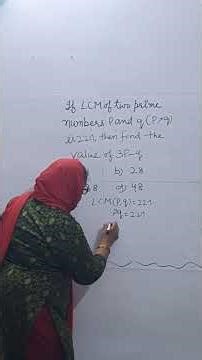 If LCM of two prime
numbers P and q (P>q)
is 221, then find the
value of 3P-q
b) 28
8 d) 48
LCM(P,q)=221
Pq=221